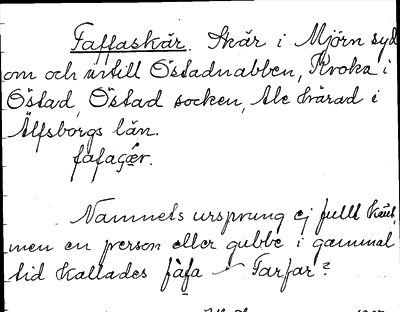 Faffaskär. Skär i Mjörn syd
om och intill Östadnabben, Kroka i
Östad, Östad socken, Ale härad i
Älfsborgs län.
fafaʃǽr.
Namnets ursprung ej fullt känt,
men en person eller gubbe i gammal
tid kallades fàfa – Farfar?